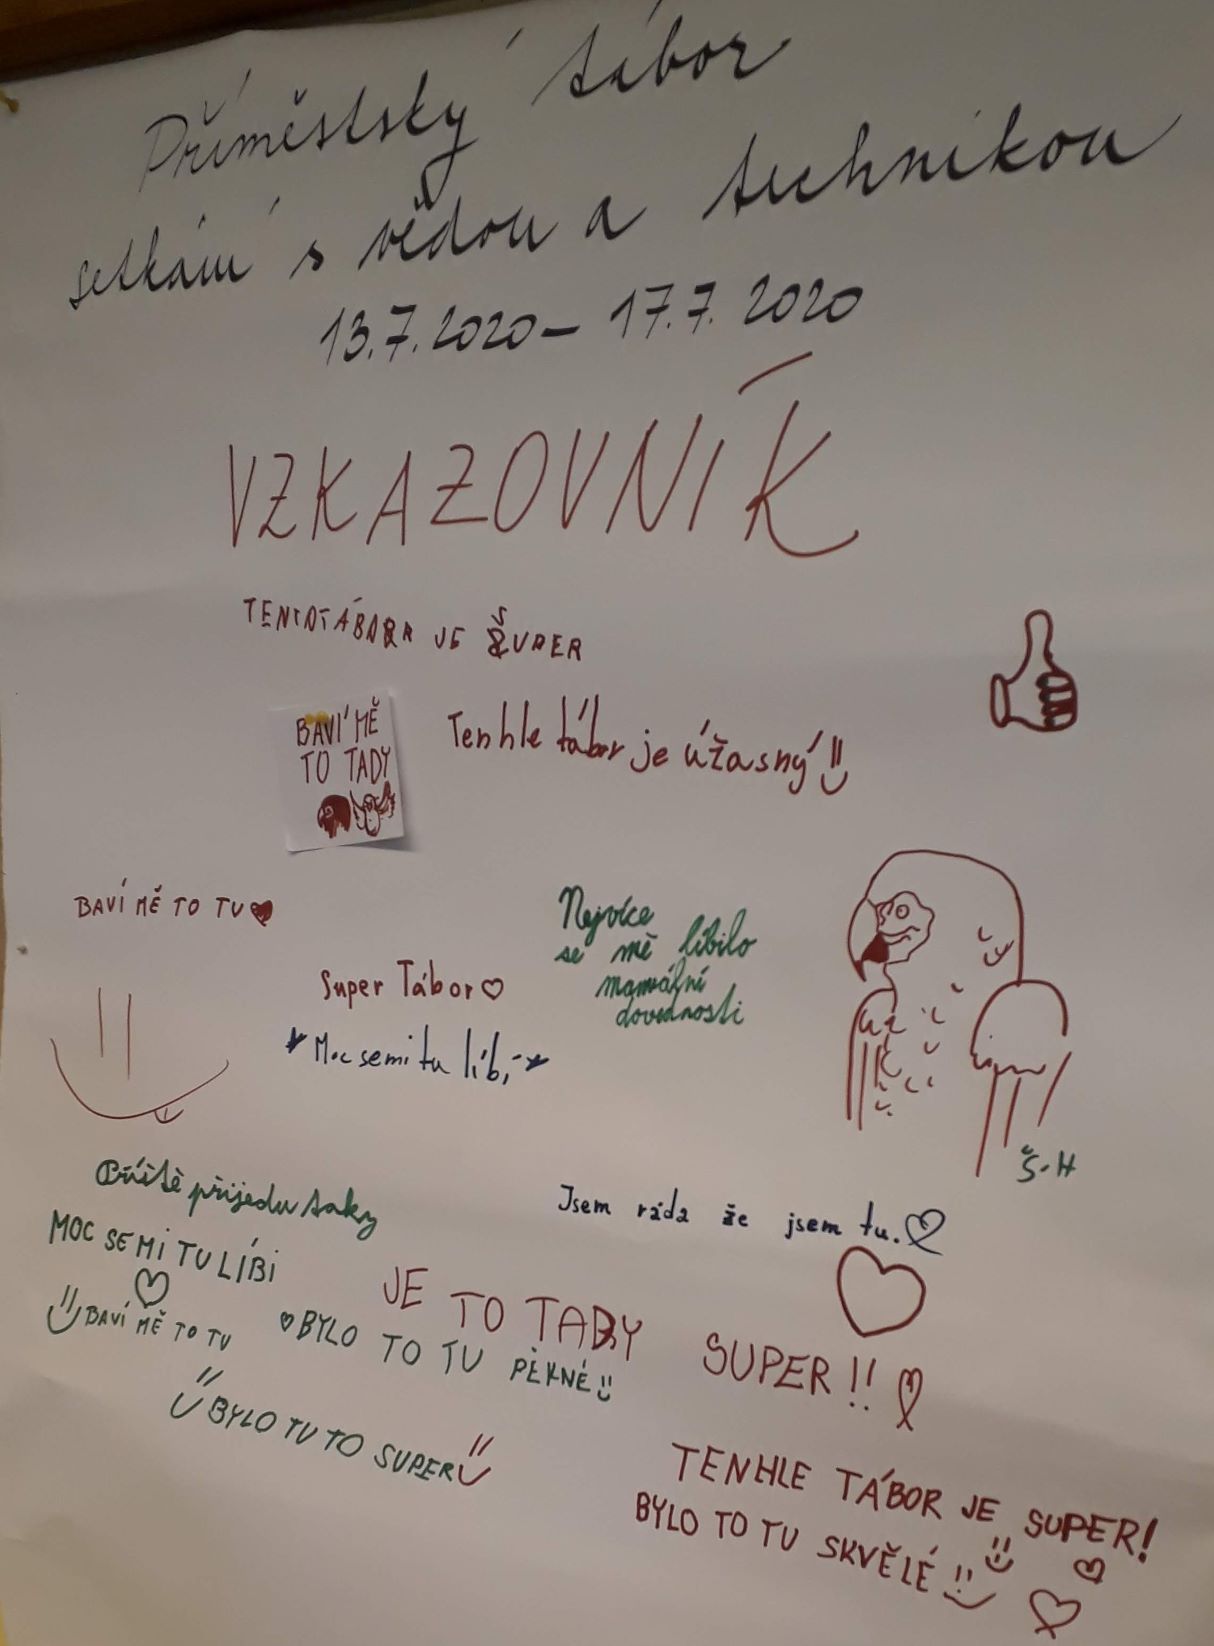 Příměstský tábor
setkání s vědou a technikou
13.7.2020 – 17.7.2020
VZKAZOVNÍK
JE
BAVÍ MĚ
TO TADY
Tenhle tábor je úžasný
BAVÍ MĚ TO TU
Nejvíce
se mě líbilo
manuální
dovednosti
Super Tábor
Moc se mi tu líbí
Š-H
Příště přijedu taky
Jsem ráda že jsem tu.
MOC SE MI TU LÍBÍ
JE TO TADY SUPER!!
BAVÍ MĚ TO TU
BYLO TO TU PĚKNÉ
BYLO TU TO SUPER
TENHLE TÁBOR JE SUPER!
BYLO TO TU SKVĚLÉ